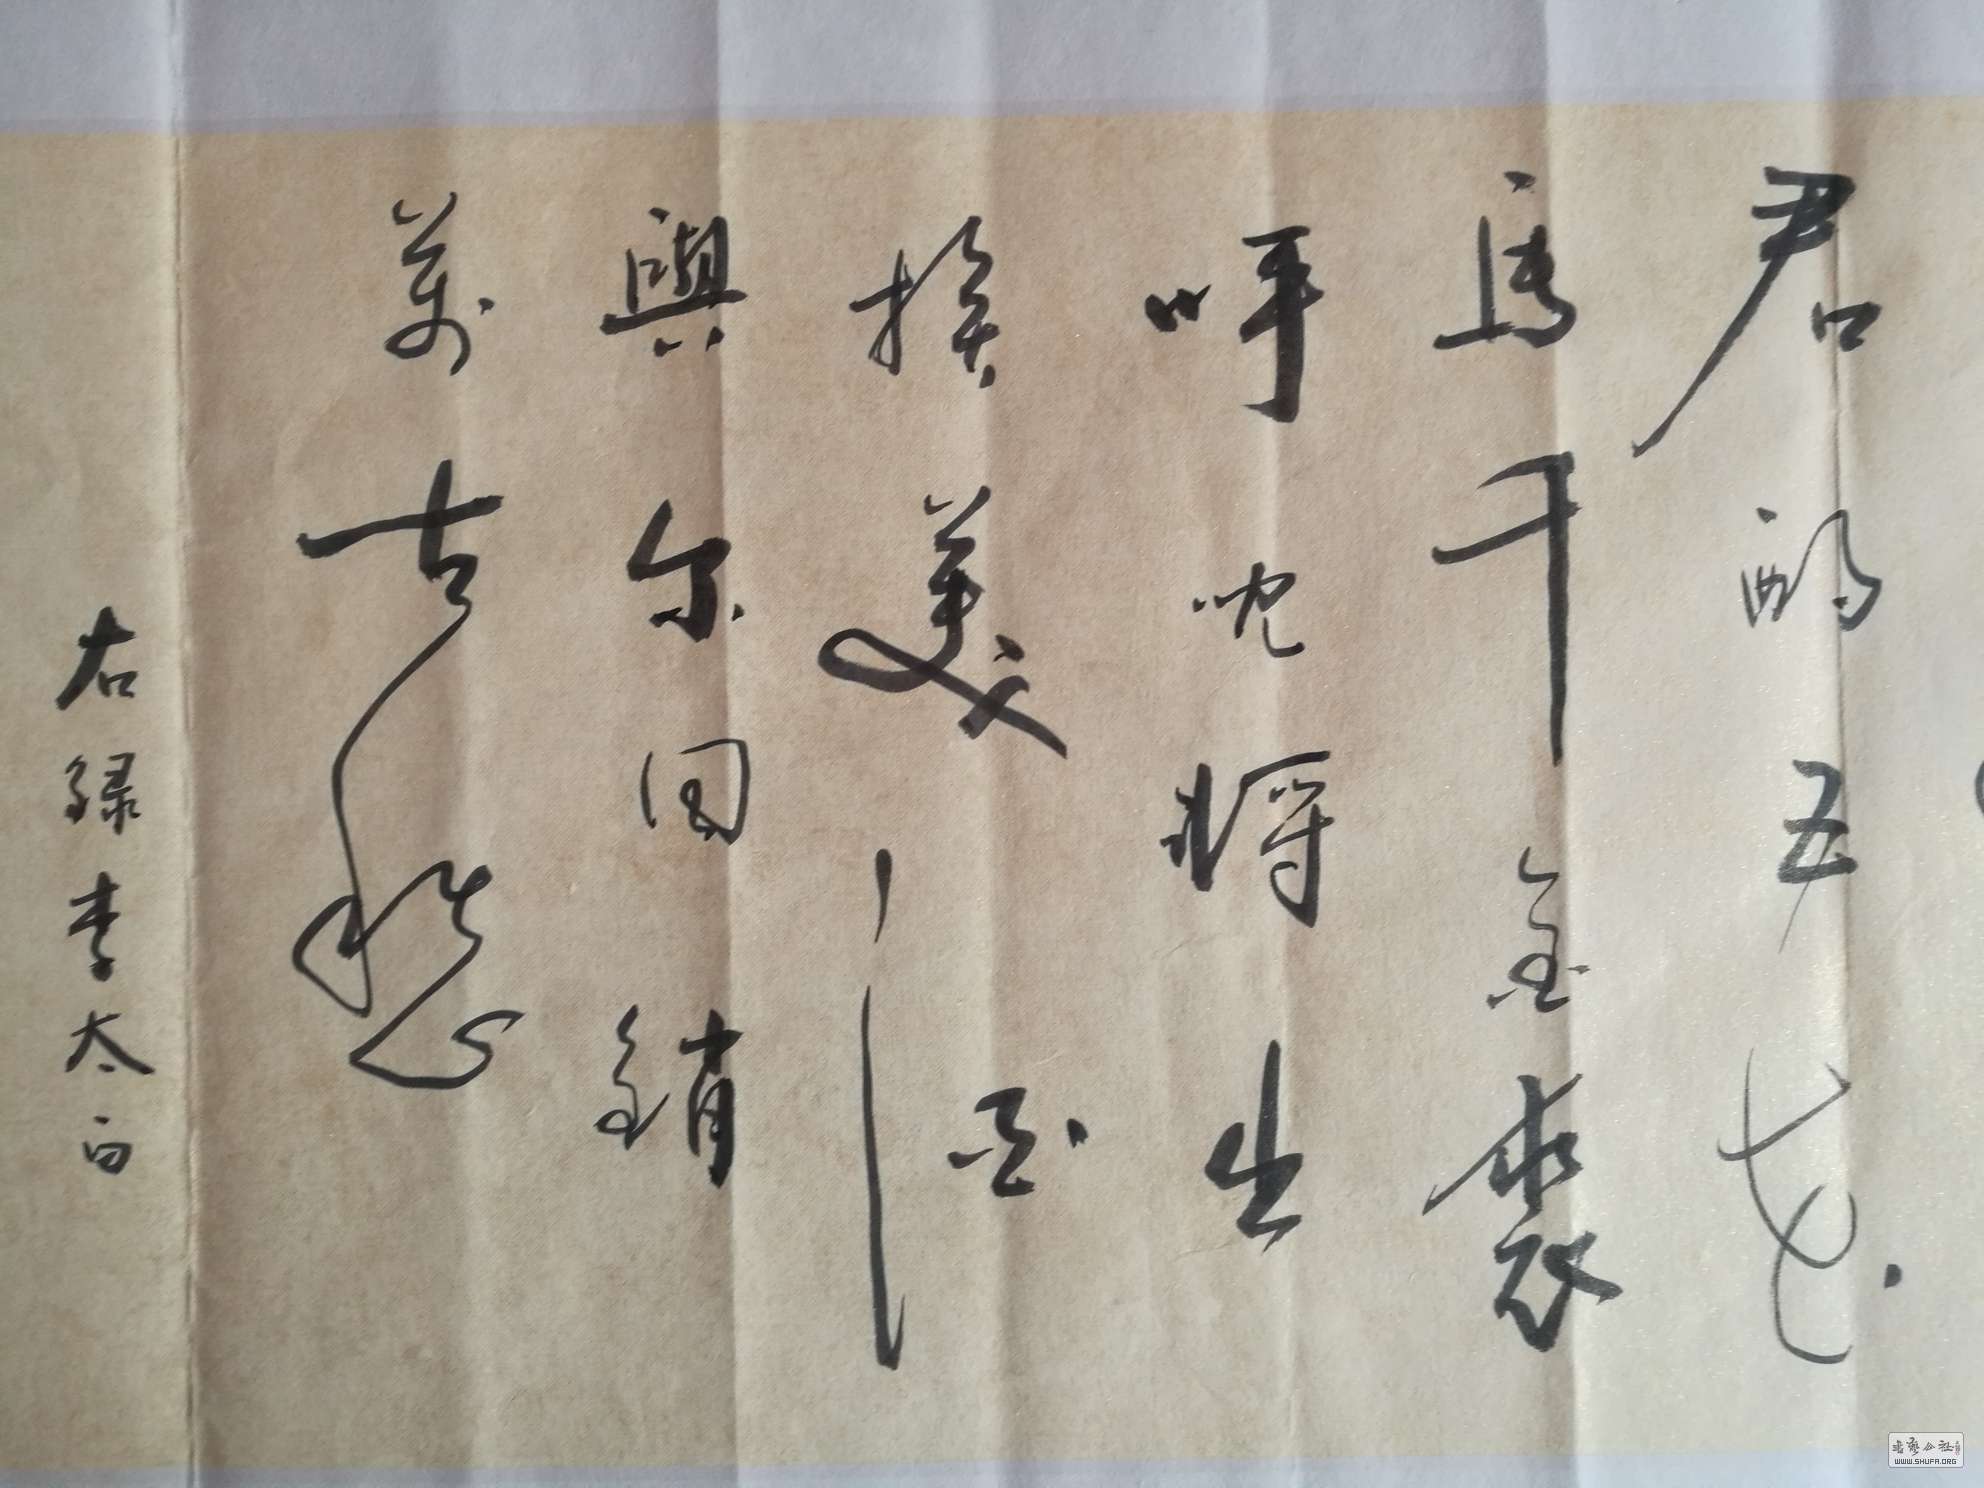 君酌五花
馬千金裘
呼兒將出
換美酒
與尔同銷
萬古愁
右録李太白
書藝公社
WWW.SHUFA.ORG